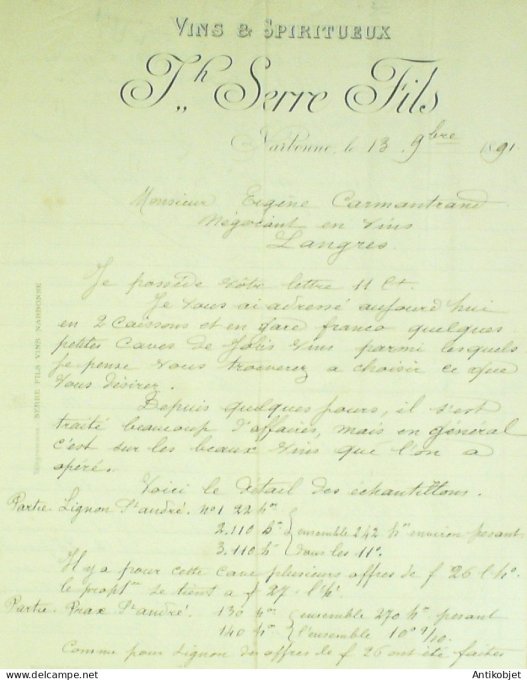 VINS & SPIRITUEUX
J,,h Serre Fils
Narbonne, le 13 9bre 1891
Monsieur Eugène Carmantrand
Négociant en Vins
Langres.
Je possède Vôtre lettre 11 Ct.
Je Vous ai adressé aujourd'hui
en 2 Caissons et en gare franco quelques
petites Caves de Jolis Vins parmi lesquels
Je pense Vous trouverez a choisir ce que
Vous désirez.
Depuis quelques jours, il s'est
traité beaucoup d'affaires, mais en général
c'est sur les beaux Vins que l'on a
opéré.
Voici le Détail des échantillons.
Partie. Lignon St andré. No 1 22 hm
2. 110 h ensemble 242 hm environ pesant
3. 110 h tous les 11°.
Il y a pour cette Cave plusieurs offres de f 26 l'ho.
le proptre se tient a f 27. l'ho.
Partie. Prax St andré. 130 hm ensemble 270 hm pesant
140 hm l'ensemble 10° 9/10.
Comme pour Lignon des offres de f 26 ont été faites
SERRE FILS VINS NARBONNE
© Antikobjet
Antikobjet